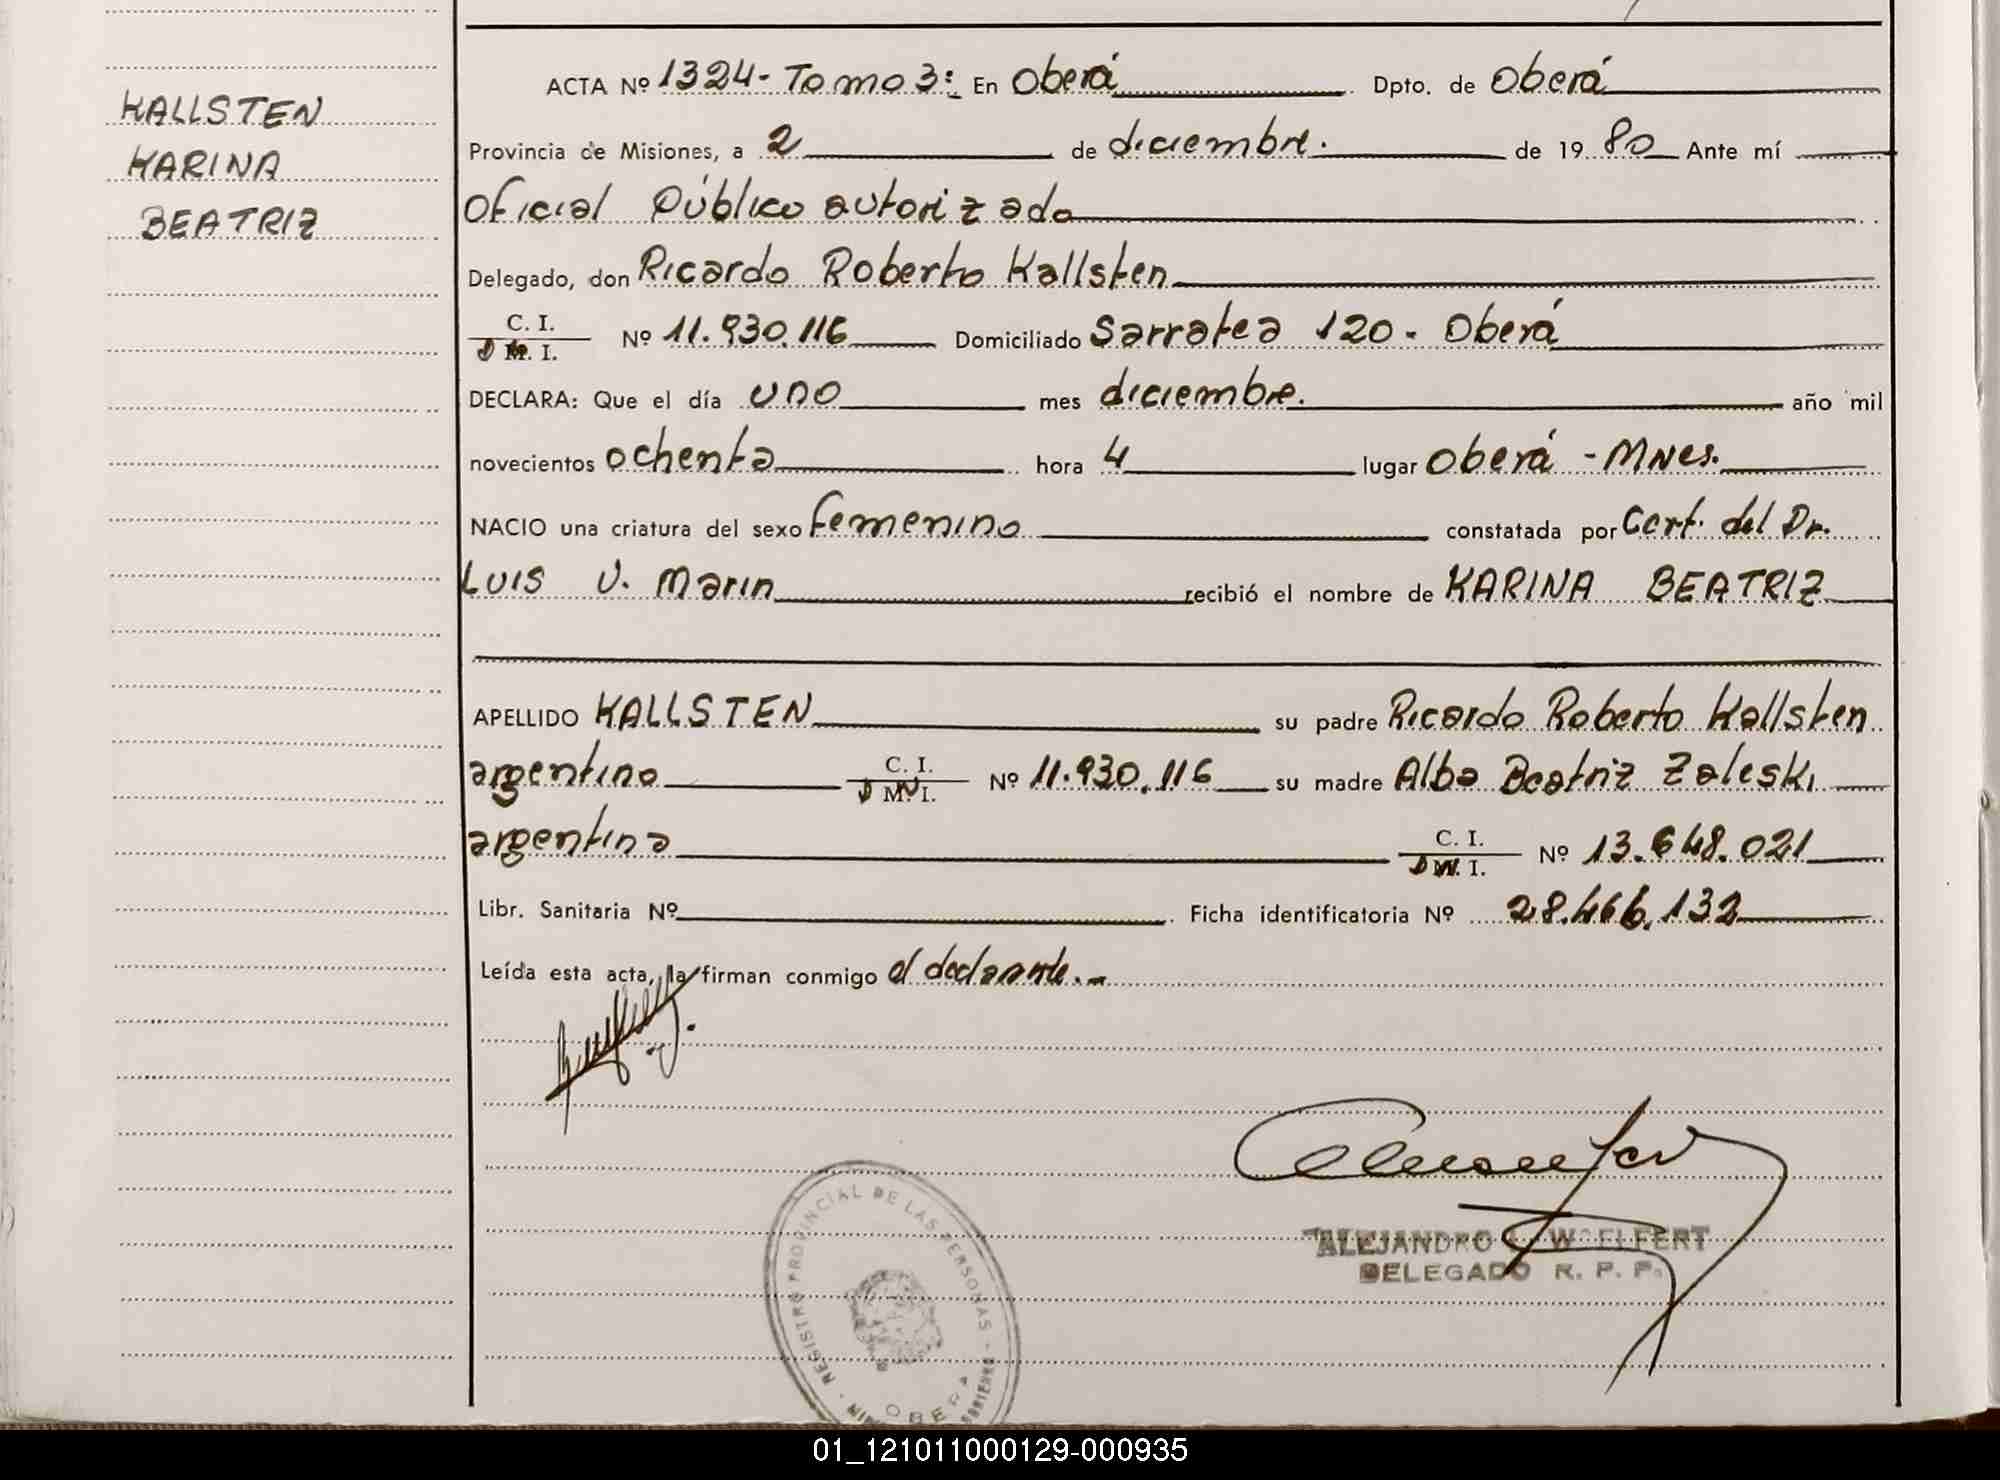 KALLSTEN
KARINA
BEATRIZ
ACTA Nº 1324 - Tomo 3: En Oberá Dpto. de Oberá
Provincia de Misiones, a 2 de diciembre. de 19 80 Ante mí
Oficial Público autorizado
Delegado, don Ricardo Roberto Kallsten
C. I.
D N. I. Nº 11.930.116 Domiciliado Sarratea 120 - Oberá
DECLARA: Que el día uno mes diciembre. año mil
novecientos ochenta hora 4 lugar Oberá - Mnes.
NACIO una criatura del sexo femenino constatada por Cert. del Dr.
Luis V. Marin recibió el nombre de KARINA BEATRIZ
APELLIDO KALLSTEN su padre Ricardo Roberto Kallsten
argentino C. I. Nº 11.930.116 su madre Alba Beatriz Zaleski
D N. I.
argentina C. I. Nº 13.648.021
D N. I.
Libr. Sanitaria Nº Ficha identificatoria Nº 28.466.132
Leída esta acta, la firman conmigo el declarante.-
ALEJANDRO WOELFERT
DELEGADO R. P. P.
REGISTRO PROVINCIAL DE LAS PERSONAS
OBERA
01_121011000129-000935